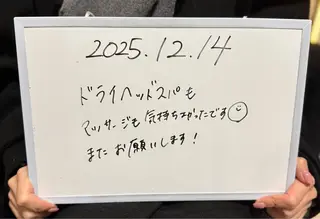 2025.12.14
ドライヘッドスパも
マッサージも気持ちよかったです
またお願いします！